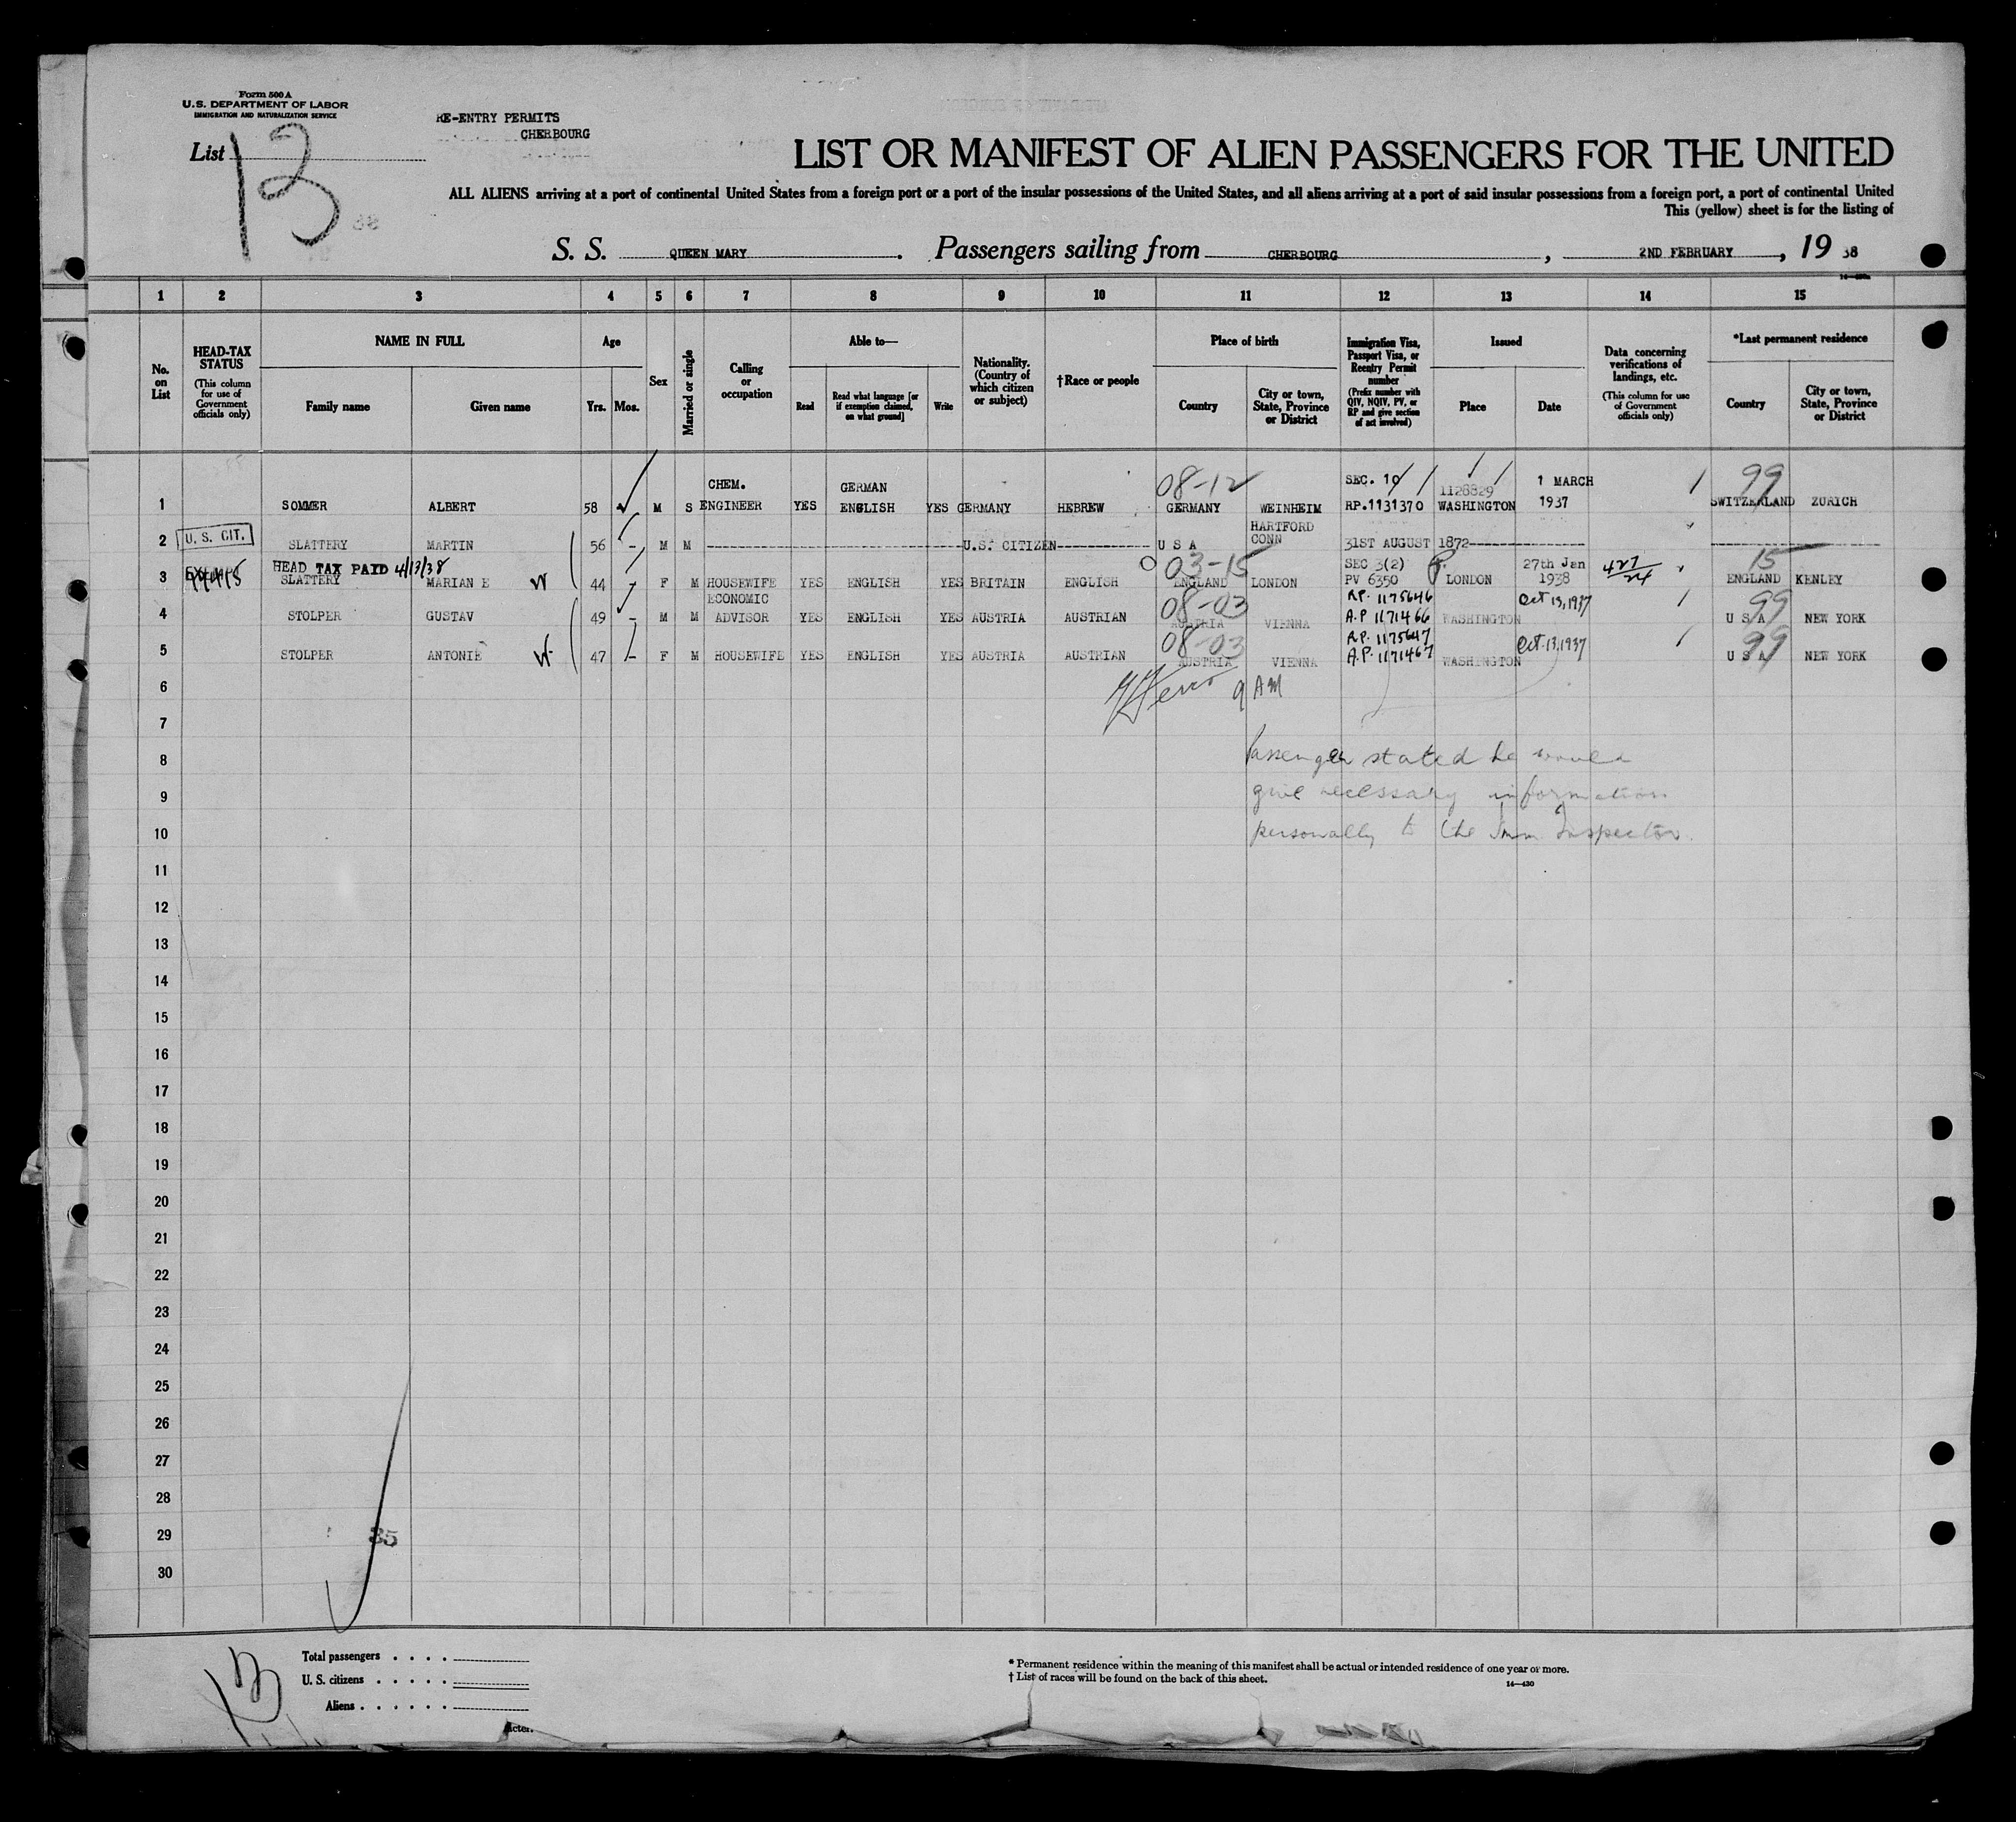 Form 500 A
U.S. DEPARTMENT OF LABOR
IMMIGRATION AND NATURALIZATION SERVICE
RE-ENTRY PERMITS
CHERBOURG
List 13
LIST OR MANIFEST OF ALIEN PASSENGERS FOR THE UNITED
ALL ALIENS arriving at a port of continental United States from a foreign port or a port of the insular possessions of the United States, and all aliens arriving at a port of said insular possessions from a foreign port, a port of continental United
This (yellow) sheet is for the listing of
S. S. QUEEN MARY. Passengers sailing from CHERBOURG, 2ND FEBRUARY, 19 38
1 2 3 4 5 6 7 8 9 10 11 12 13 14 15
No. on List
HEAD-TAX STATUS (This column for use of Government officials only)
NAME IN FULL
Family name
Given name
Age
Yrs. Mos.
Sex
Married or single
Calling or occupation
Able to—
Read
Read what language [or if exemption claimed, on what ground]
Write
Nationality. (Country of which citizen or subject)
†Race or people
Place of birth
Country
City or town, State, Province or District
Immigration Visa, Passport Visa, or Reentry Permit number (Prefix number with QIV, NQIV, PV, or RP and give section of act involved)
Issued
Place
Date
Data concerning verifications of landings, etc. (This column for use of Government officials only)
*Last permanent residence
Country
City or town, State, Province or District
CHEM. GERMAN 08-12 SEC. 10 1128829 1 MARCH 99
1 SOMMER ALBERT 58 M S ENGINEER YES ENGLISH YES GERMANY HEBREW GERMANY WEINHEIM RP.1131370 WASHINGTON 1937 SWITZERLAND ZURICH
HARTFORD
2 U. S. CIT. SLATTERY MARTIN 56 - M M U.S. CITIZEN U S A CONN 31ST AUGUST 1872
HEAD TAX PAID 4/13/38 03-15 SEC 3(2) 27th Jan 427/24 15
3 SLATTERY MARIAN E W 44 - F M HOUSEWIFE YES ENGLISH YES BRITAIN ENGLISH ENGLAND LONDON PV 6350 LONDON 1938 ENGLAND KENLEY
ECONOMIC 08-03 RP. 1175646 Oct 13, 1937 99
4 STOLPER GUSTAV 49 - M M ADVISOR YES ENGLISH YES AUSTRIA AUSTRIAN AUSTRIA VIENNA A.P 1171466 WASHINGTON U S A NEW YORK
08-03 RP. 1175647 Oct. 13, 1937 99
5 STOLPER ANTONIE W 47 - F M HOUSEWIFE YES ENGLISH YES AUSTRIA AUSTRIAN AUSTRIA VIENNA A.P. 1171467 WASHINGTON U S A NEW YORK
6 9 AM
7
8 Passenger stated he would
9 give necessary information
10 personally to the Imm Inspector.
11
12
13
14
15
16
17
18
19
20
21
22
23
24
25
26
27
28
29 35
30
13
Total passengers . . . .
U. S. citizens . . . . .
Aliens . . . . . .
* Permanent residence within the meaning of this manifest shall be actual or intended residence of one year or more.
† List of races will be found on the back of this sheet.
14—430